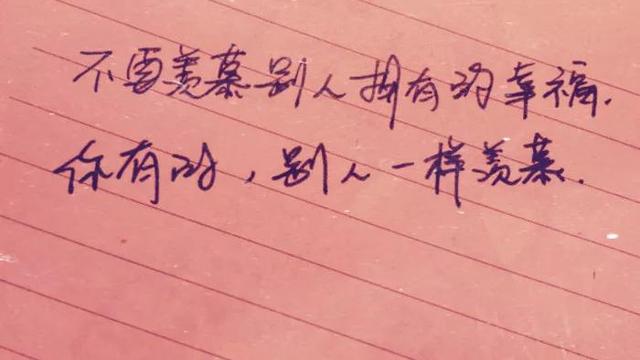 不要羡慕别人拥有的幸福.
你有的,别人一样羡慕.